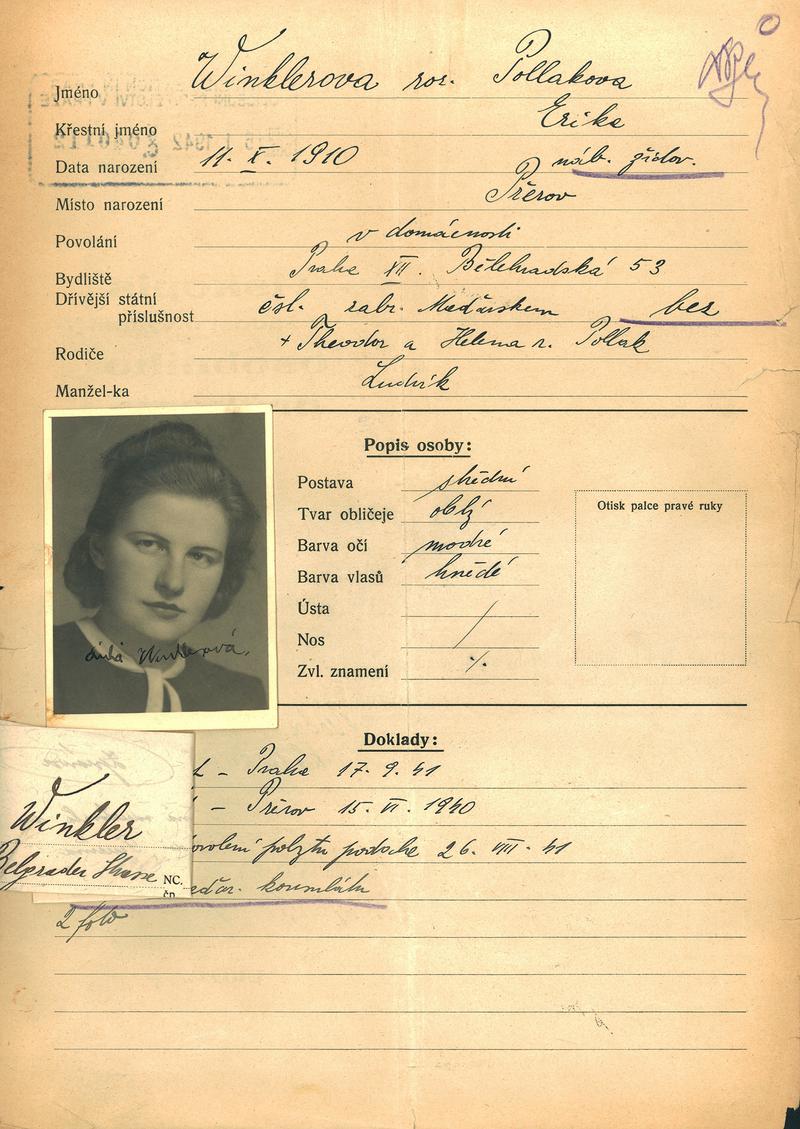 Jméno Winklerova roz. Pollakova
Křestní jméno Erika
Data narození 11. X. 1910 náb. židov.
Místo narození Přerov
Povolání v domácnosti
Bydliště Praha XII. Bělehradská 53
Dřívější státní
příslušnost čsl. zabr. Maďarskem bez
Rodiče + Theodor a Helena r. Pollak
Manžel-ka Ludvík
Popis osoby:
Postava střední
Tvar obličeje oblý
Barva očí modré
Barva vlasů hnědé
Ústa /
Nos
Zvl. znamení ·/.
Otisk palce pravé ruky
Winklerová
Doklady:
– Praha 17. 9. 41
– Přerov 15. VI. 1940
podáche 26. VIII. 41
konsulátu
2 foto
Winkler
Belgrader Strasse NC.
čp.